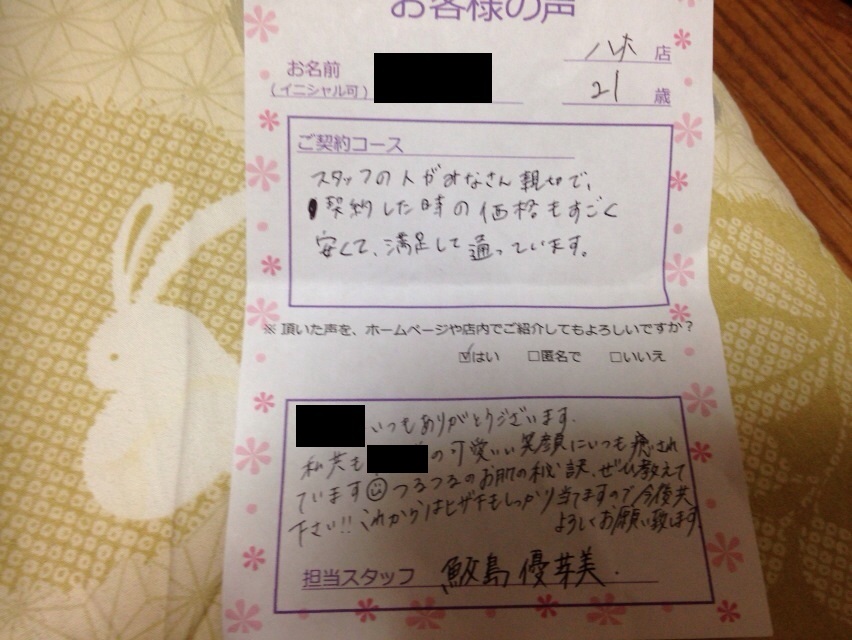 お客様の声
ハホ 店
お名前
(イニシャル可)
21 歳
ご契約コース
スタッフの人がみなさん親切で、
契約した時の価格もすごく
安くて、満足して通っています。
※ 頂いた声を、ホームページや店内でご紹介してもよろしいですか?
☑はい □匿名で □いいえ
いつもありがとうございます.
私共も の可愛いい笑顔にいつも癒され
ています☺つるつるのお肌の秘訣、ぜひ教えて
下さい!! これからはヒザ下もしっかり当てますので今後共
よろしくお願い致します
担当スタッフ 鮫島 優芽美.